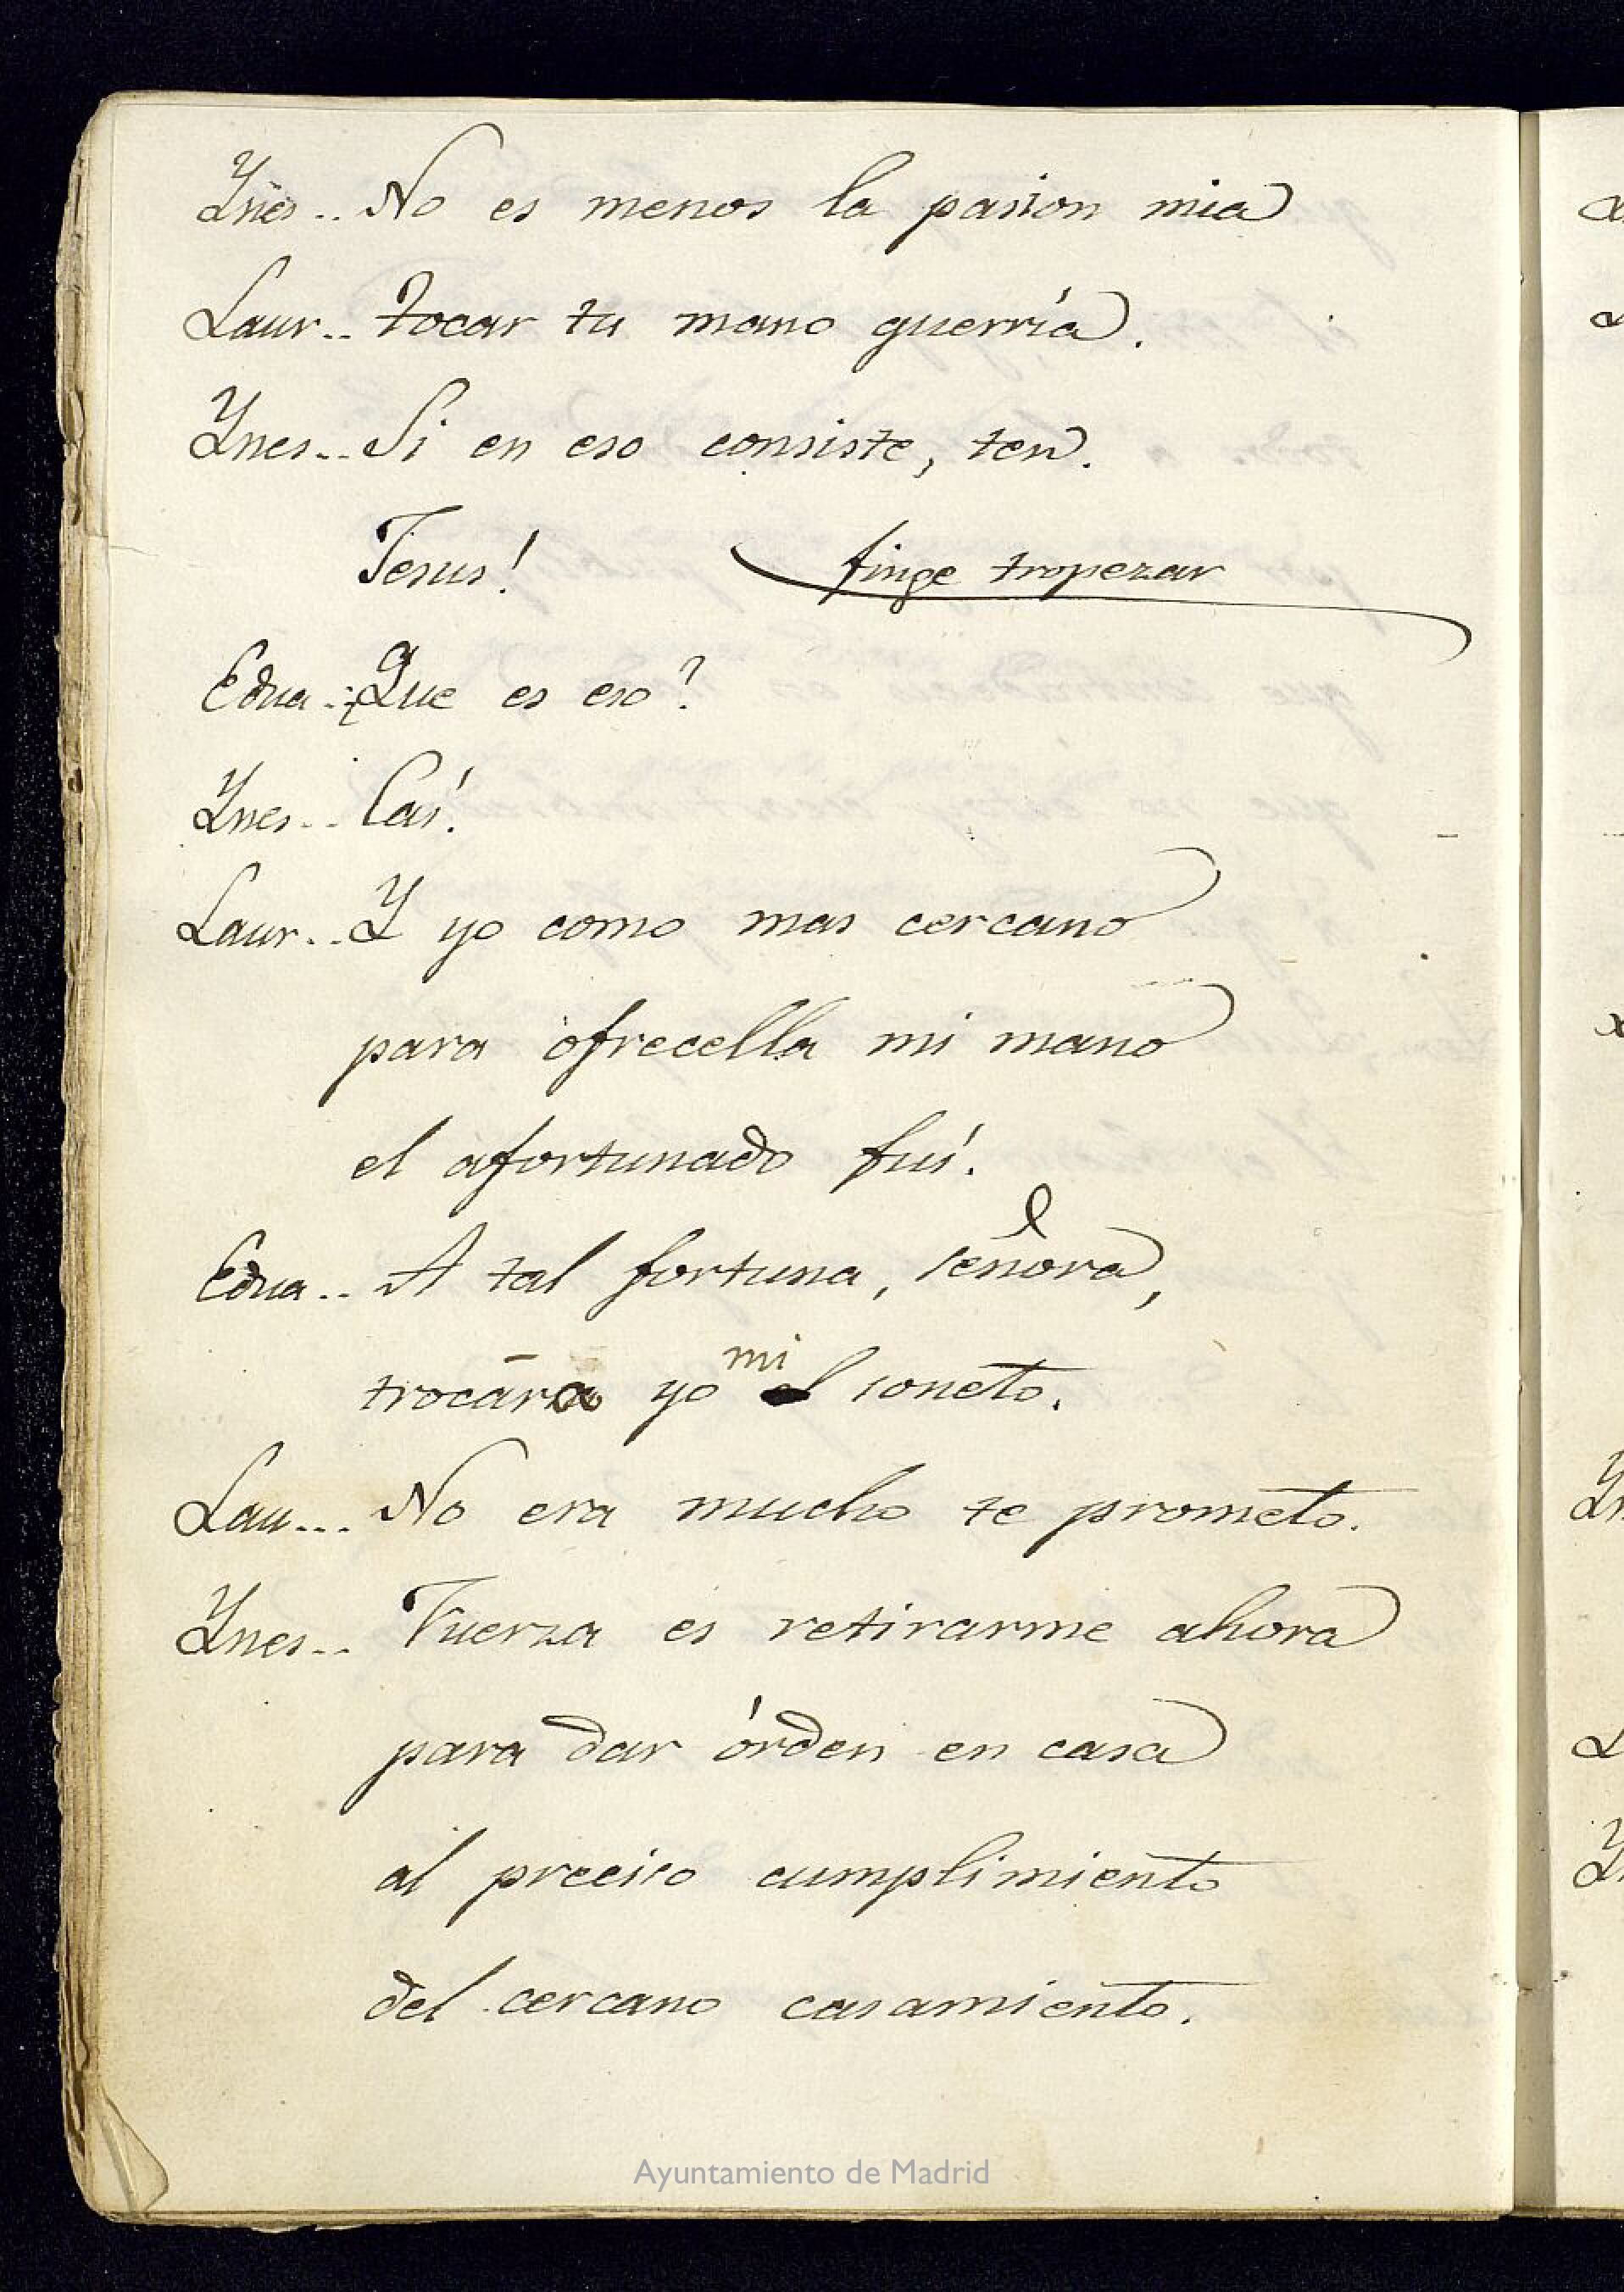 Ynes.. No es menos la pasion mia
Laur.. tocar tu mano querría.
Ynes.. Si en eso consiste, ten.
Jesus! finge tropezar
Edua.. ¿Que es eso?
Ynes.. Caí.
Laur.. Y yo como mas cercano
para ofrecella mi mano
el afortunado fuí.
Edua.. A tal fortuna, señora,
mi
trocára yo el soneto.
Lau... No era mucho te prometo.
Ynes.. Fuerza es retirarme ahora
para dar órden en casa
al preciso cumplimiento
del cercano casamiento.
Ayuntamiento de Madrid